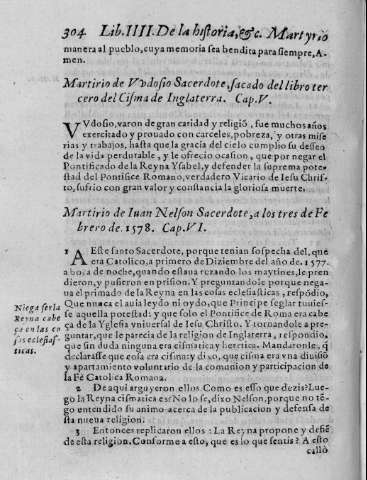 304 Lib. IIII. De la historia, &c. Martyrio
manera al pueblo, cuya memoria sea bendita para siempre, A-
men.
Martirio de Vvdosio Sacerdote, sacado del libro ter
cero del Cisma de Inglaterra. Cap. V.
VVdosio, varon de gran caridad y religiõ, fue muchos años
exercitado y prouado con carceles, pobreza, y otras mise
rias y trabajos, hasta que la gracia del cielo cumplio su desseo
de la vida perdutable, y le ofrecio ocasion, que por negar el
Pontificado de la Reyna Ysabel, y defender la suprema pote-
stad del Pontifice Romano, verdadero Vicario de Iesu Chris-
to, sufrio con gran valor y constancia la gloriosa muerte.
Martirio de Iuan Nelson Sacerdote, a los tres de Fe
brero de. 1578. Cap. VI.
1 A Este santo Sacerdote, porque tenian sospecha del, que
era Catolico, a primero de Diziembre del año de. 1577.
a boca de noche, quando estaua rezando los maytines, le pren
dieron, y pusieron en prision. Y preguntandole porque nega-
ua el primado de la Reyna en las cosas eclesiasticas, respõdio,
Que nunca el auia leydo ni oydo, que Principe seglar tuuies-
se aquella potestad: y que solo el Pontifice de Roma era cabe
ça de la Yglesia vniuersal de Iesu Christo. Y tornandole a pre-
guntar, que le parecia de la religion de Inglaterra, respondio,
que sin duda ninguna era cismatica y heretica. Mandaronle, q̃
declarasse que cosa era cisma: y dixo, que cisma era vna diuisiõ
y apartamiento voluntario de la comunion y participacion de
la Fé Catolica Romana.
Niega ser la
Reyna cabe
ça en las co
sas eclesias-
ticas.
2 De aqui arguyeron ellos. Como es esso que dezis? Lue-
go la Reyna cismatica es? No lo se, dixo Nelson, porque no tẽ-
go entendido su animo acerca de la publicacion y defensa de
esta nueua religion.
3 Entonces replicaron ellos: La Reyna propone y defiẽ
de esta religion. Conforme a esto, que es lo que sentis? A esto
callò